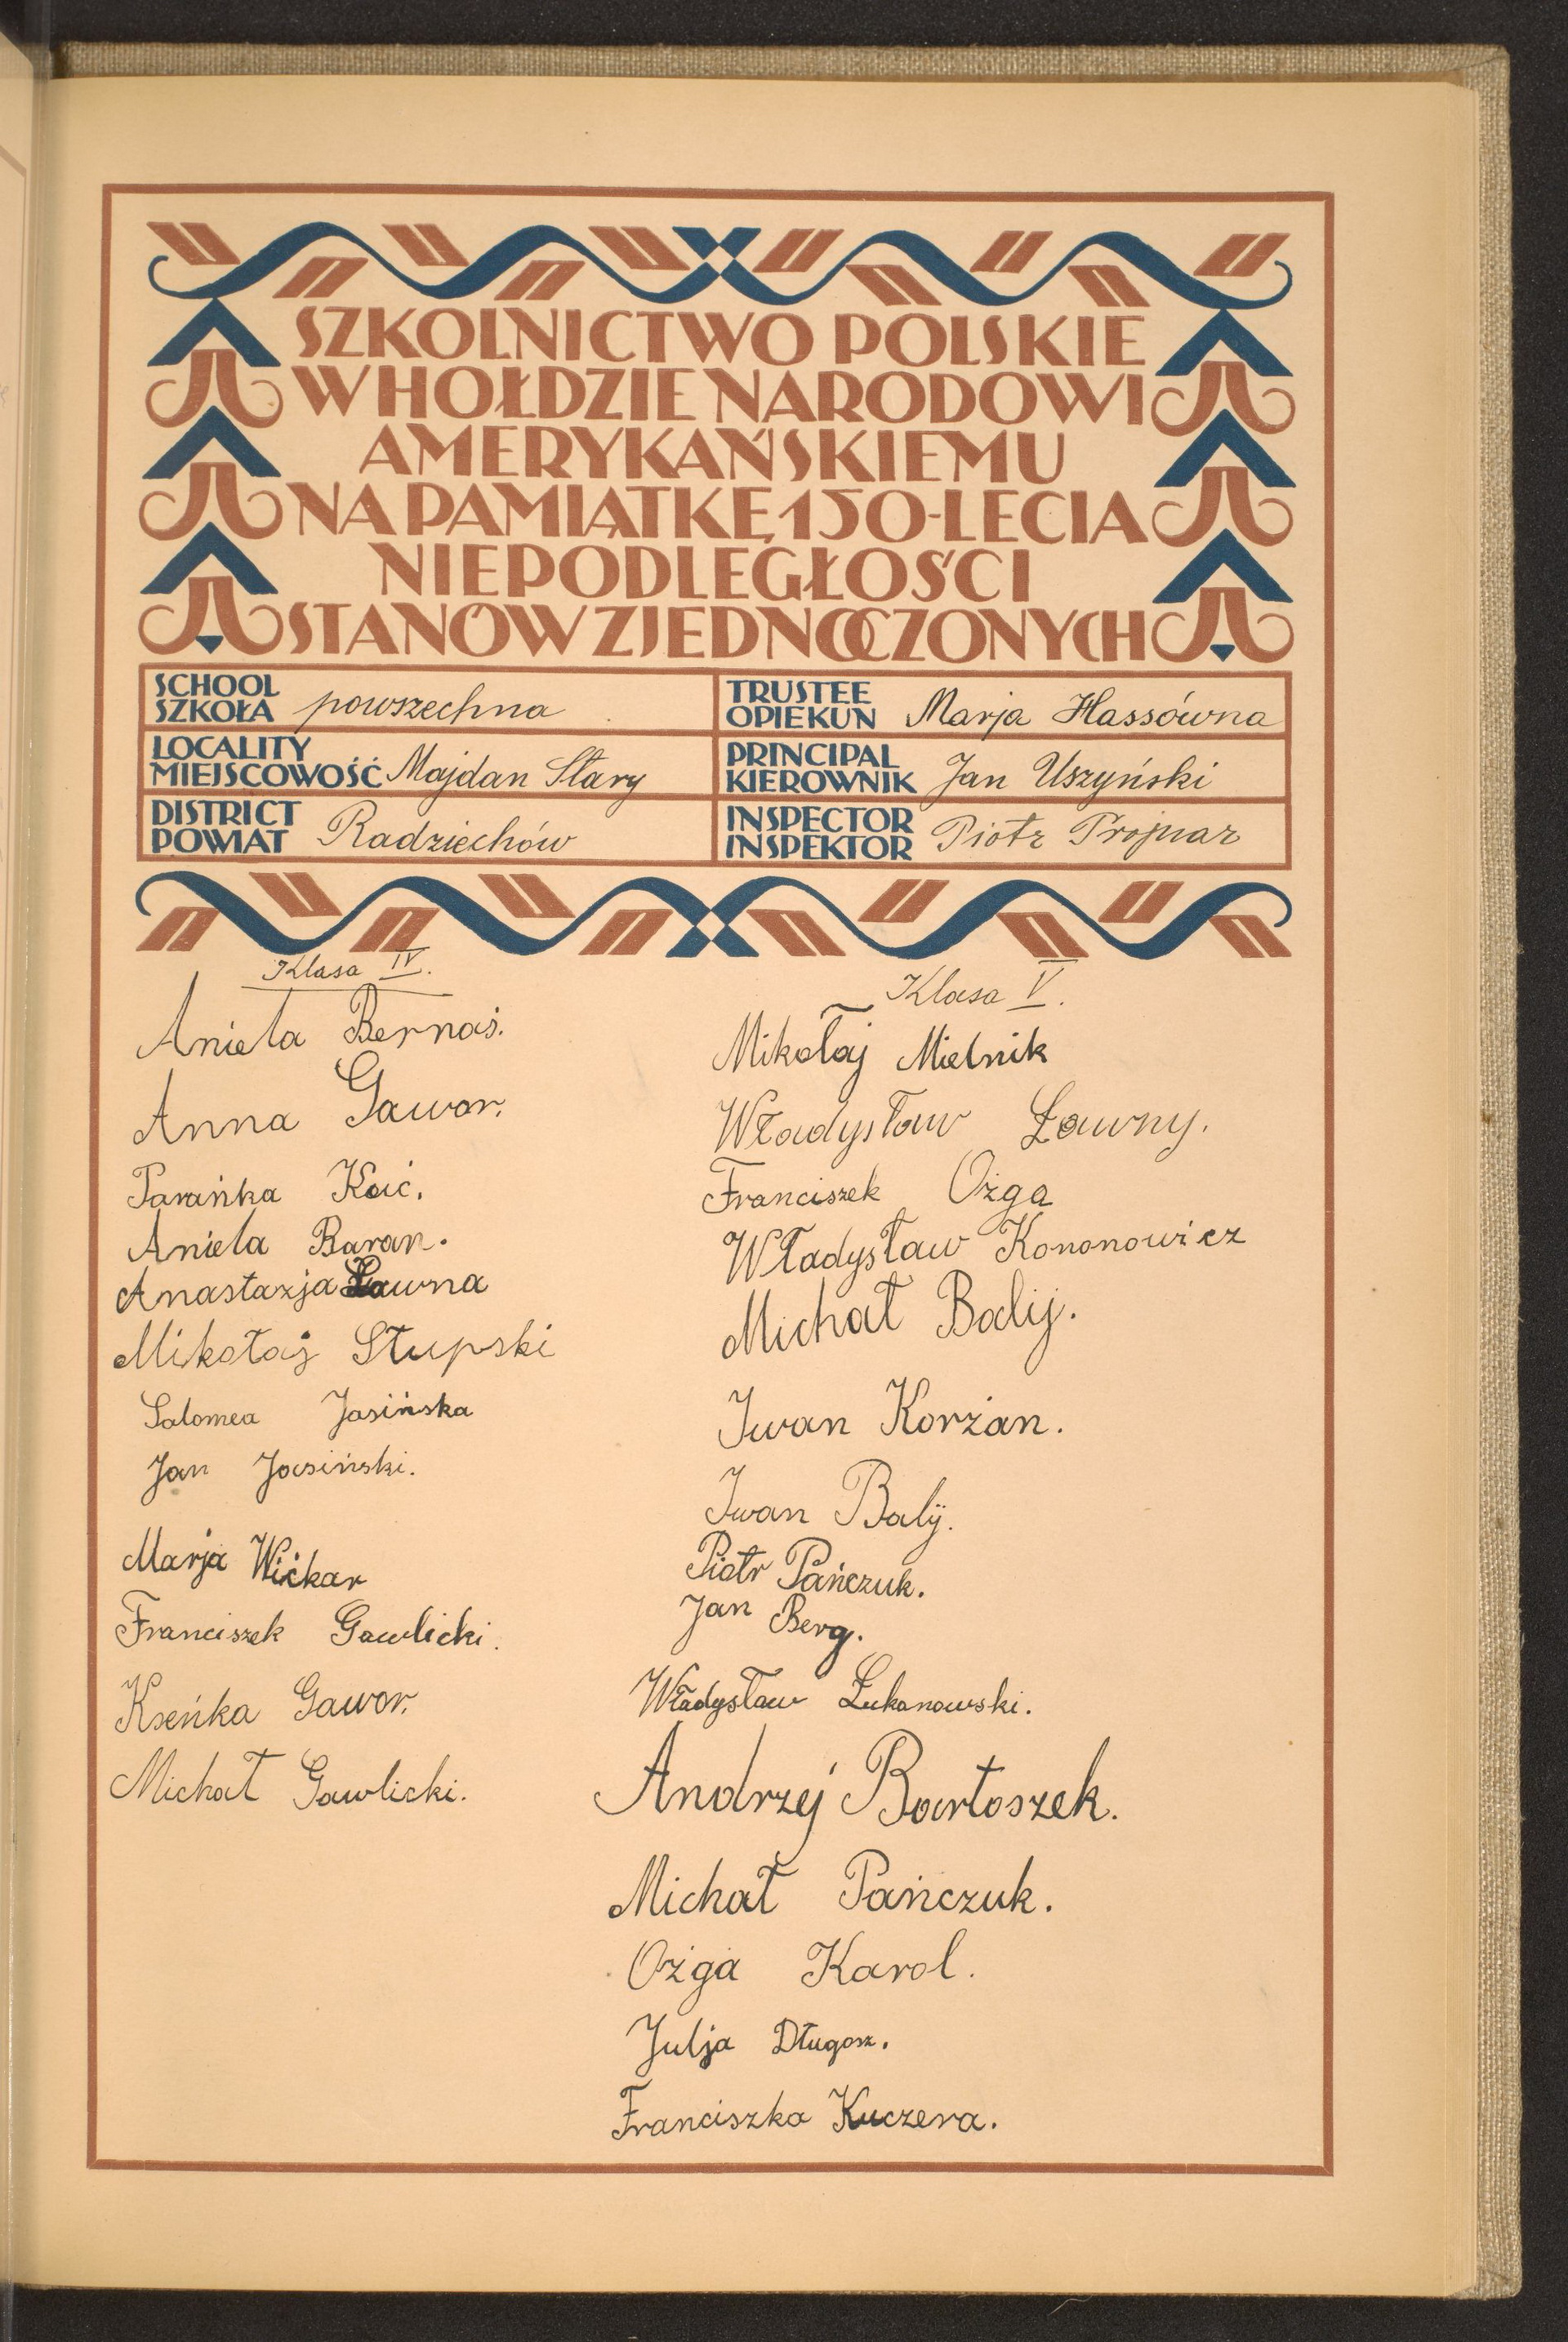 SZKOLNICTWO POLSKIE
W HOŁDZIE NARODOWI
AMERYKAŃSKIEMU
NA PAMIĄTKĘ 150-LECIA
NIEPODLEGŁOŚCI
STANÓW ZJEDNOCZONYCH
SCHOOL
SZKOŁA powszechna
LOCALITY
MIEJSCOWOŚĆ Majdan Stary
DISTRICT
POWIAT Radziechów
TRUSTEE
OPIEKUN Marja Hassówna
PRINCIPAL
KIEROWNIK Jan Uszyński
INSPECTOR
INSPEKTOR Piotr Trojnar
Klasa IV.
Aniela Bernaś.
Anna Gawor.
Parańka Kać.
Aniela Baran.
Anastazja Ławna
Mikołaj Słupski
Salomea Jasińska
Jan Jasiński.
Marja Wićkar
Franciszek Gawlicki.
Kseńka Gawor.
Michał Gawlicki.
Klasa V.
Mikołaj Mielnik
Władysław Ławny.
Franciszek Ożga
Władysław Kononowicz
Michał Balij.
Iwan Korżan.
Iwan Balij.
Piotr Pańczuk.
Jan Berg.
Władysław Łukanowski.
Andrzej Bartoszek.
Michał Pańczuk.
Ożga Karol.
Julja Długosz.
Franciszka Kuczera.